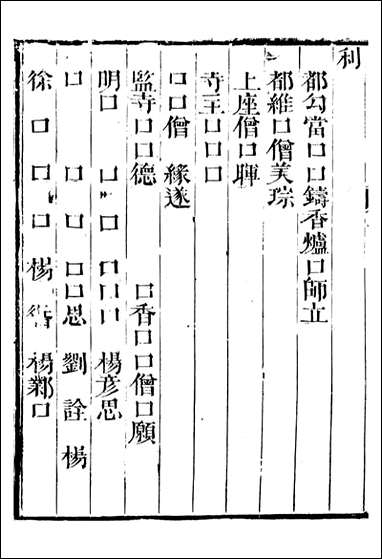 利
都勾當口口鑄香爐口師立
都維口僧美琮
上座僧口暉
寺主口口口
口口僧 緣遂
監寺口口德 口香口口僧口願
明口 口 口 口口口 楊彥思
口 口 口 口口思 劉詮 楊
徐 口 口口 口 楊 晉 楊鄴口